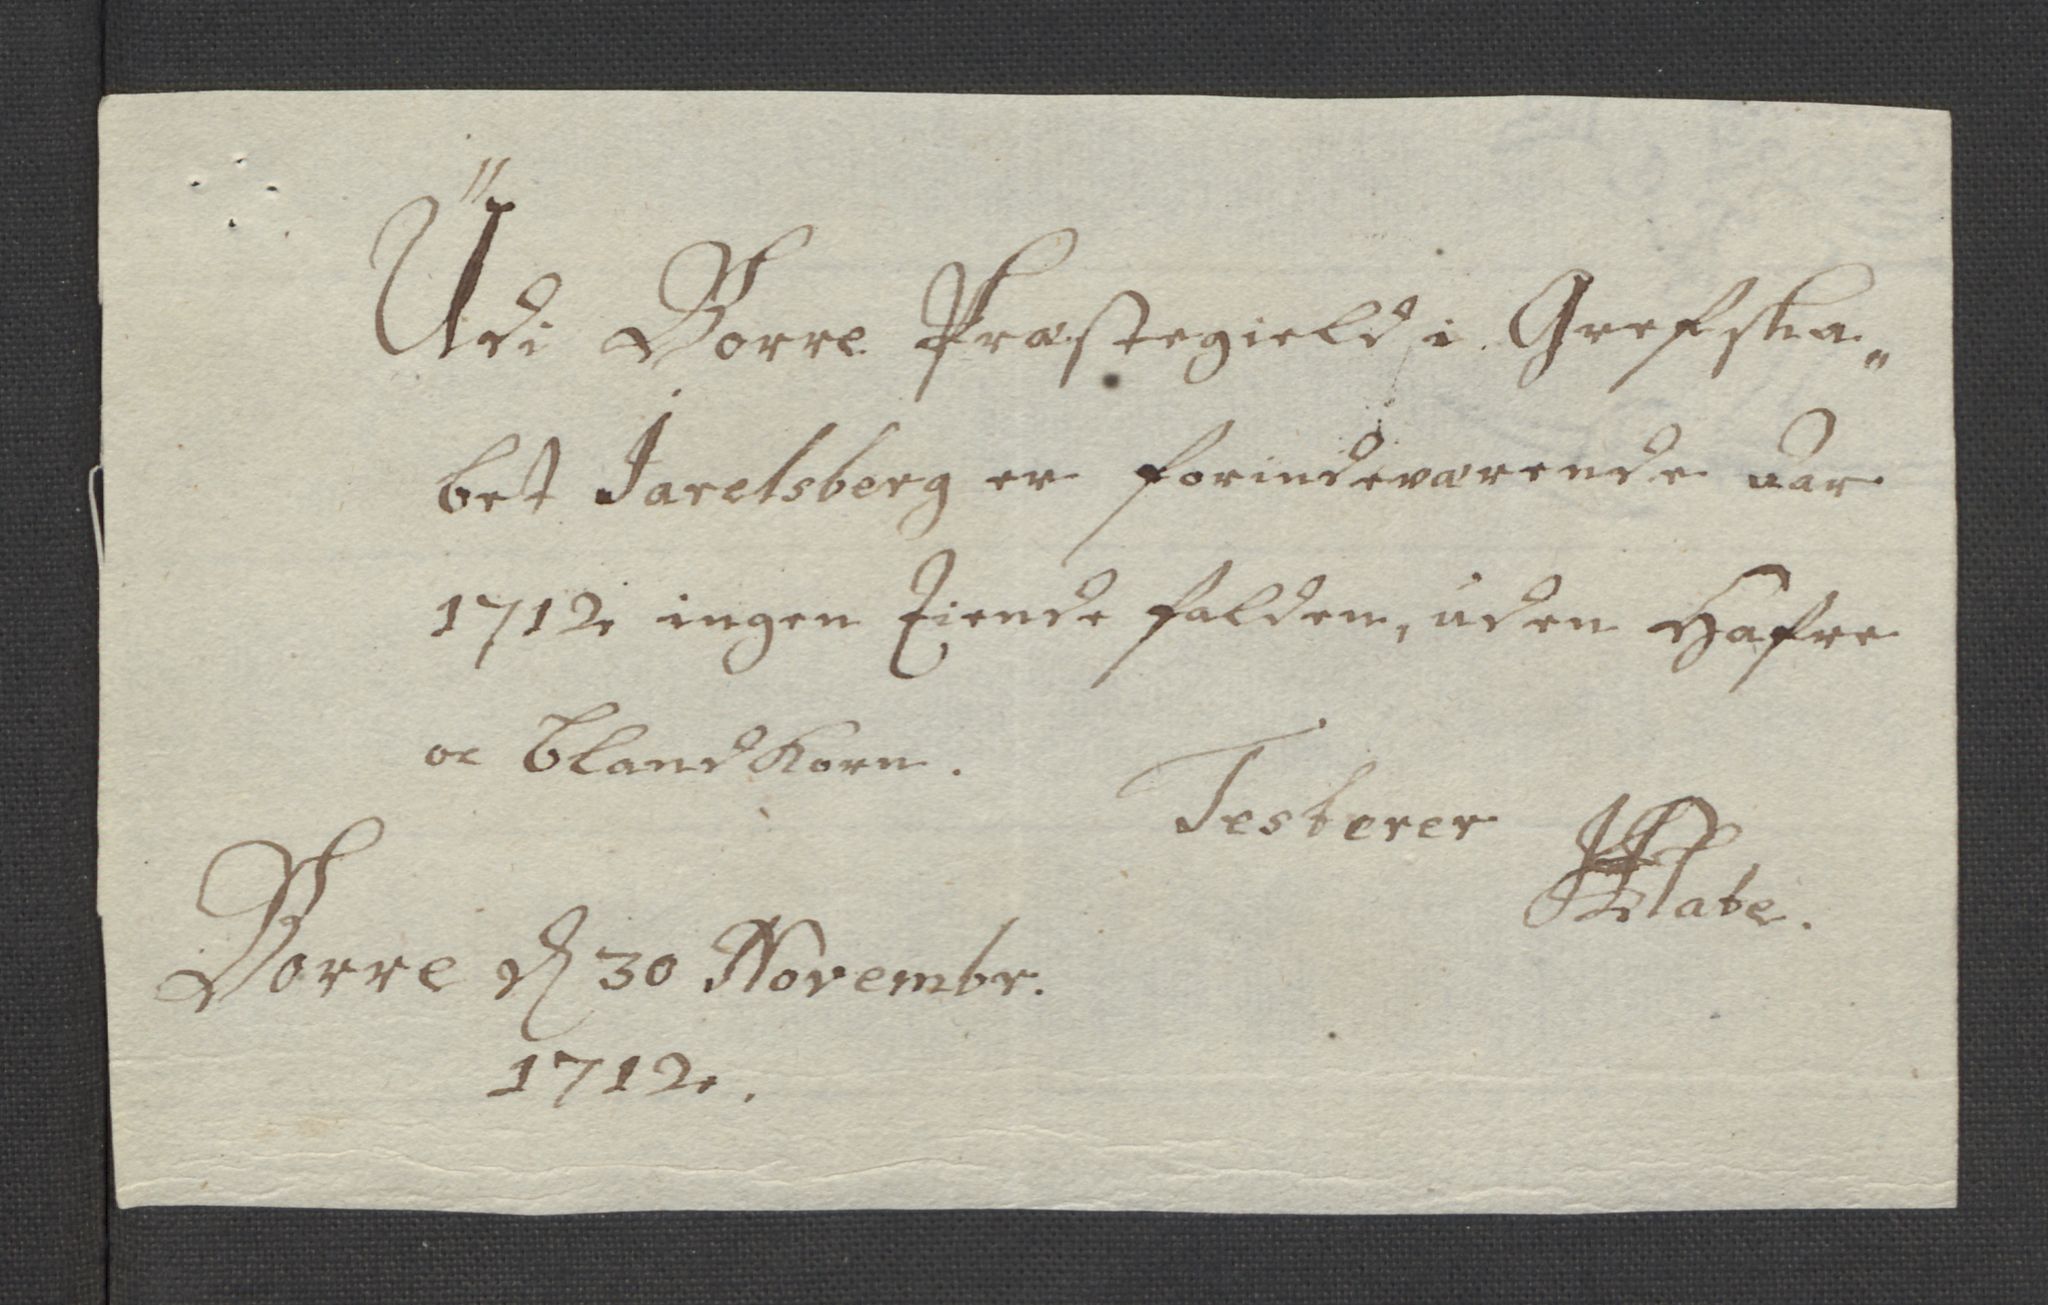 Udi Borre Præstegield i Grefska„
bet Jarelsberg er forindeværende aar
1712 ingen Tiende falden, uden Hafre
oc blandKorn.
Testerer
Borre d 30 Novembr.
1712.